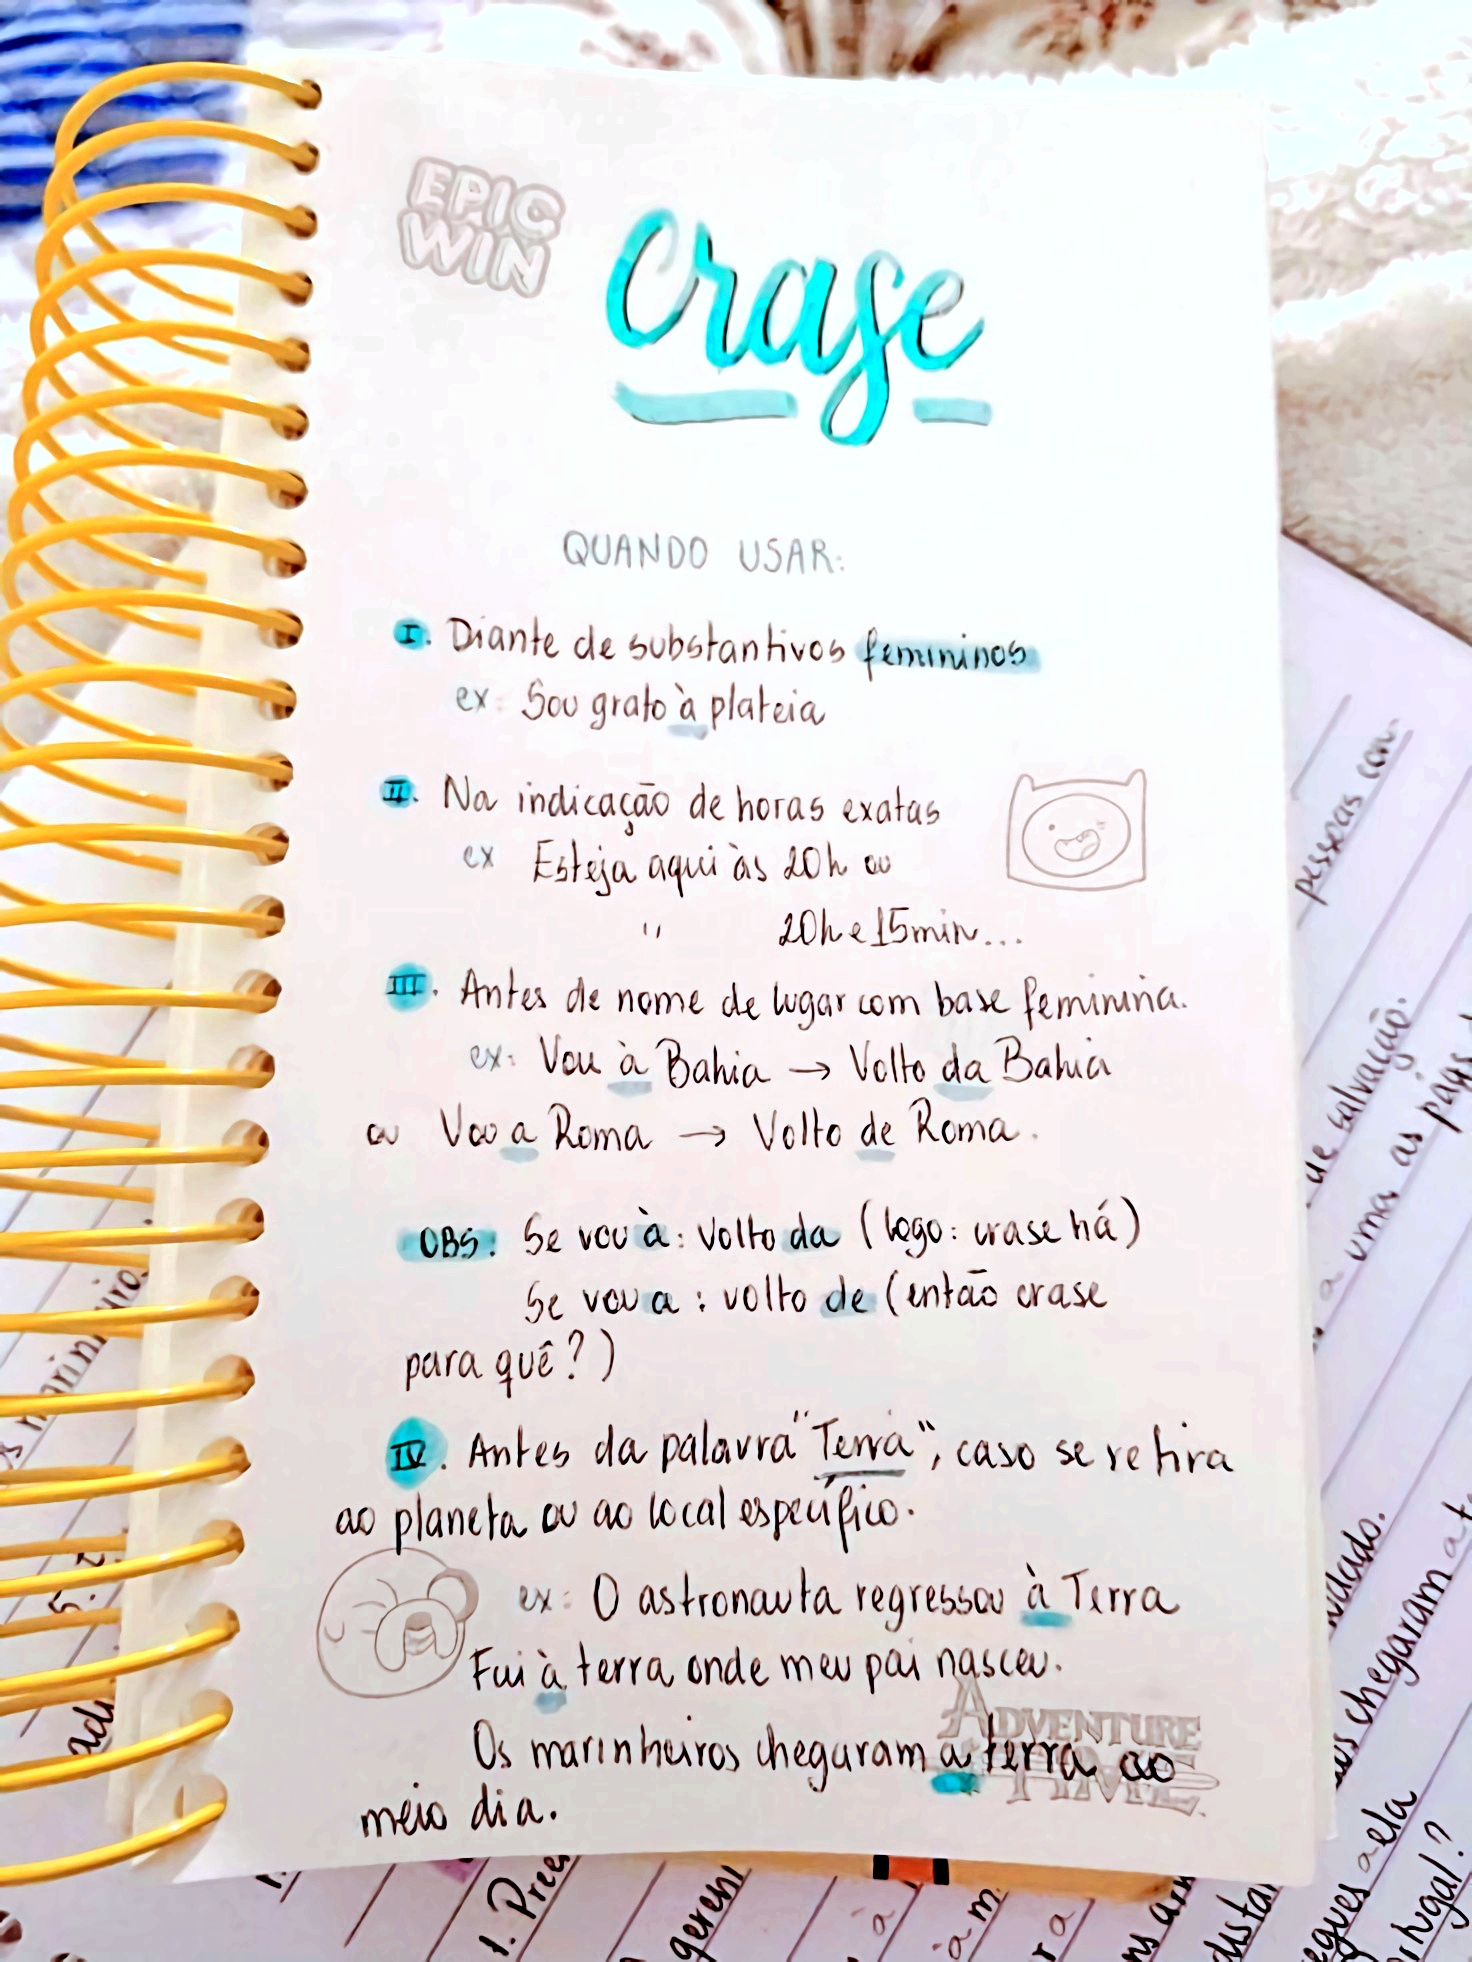 EPIC
WIN
Crase
QUANDO USAR:
I. Diante de substantivos femininos
ex: Sou grato à plateia
II. Na indicação de horas exatas
ex Esteja aqui às 20h ou
" 20h e 15min...
III. Antes de nome de lugar com base feminina.
ex: Vou à Bahia → Volto da Bahia
ou Vou a Roma → Volto de Roma.
OBS: Se vou à: Volto da (logo: crase há)
Se vou a: volto de (então crase
para quê?)
IV. Antes da palavra "Terra", caso se refira
ao planeta ou ao local específico.
ex: O astronauta regressou à Terra
Fui à terra onde meu pai nasceu.
ADVENTURE
TIME
Os marinheiros chegaram a terra ao
meio dia.
pessoas con
de salvação.
a uma as pág
chegaram a te
egues a ela
ortugal?
1. Pree
gereni